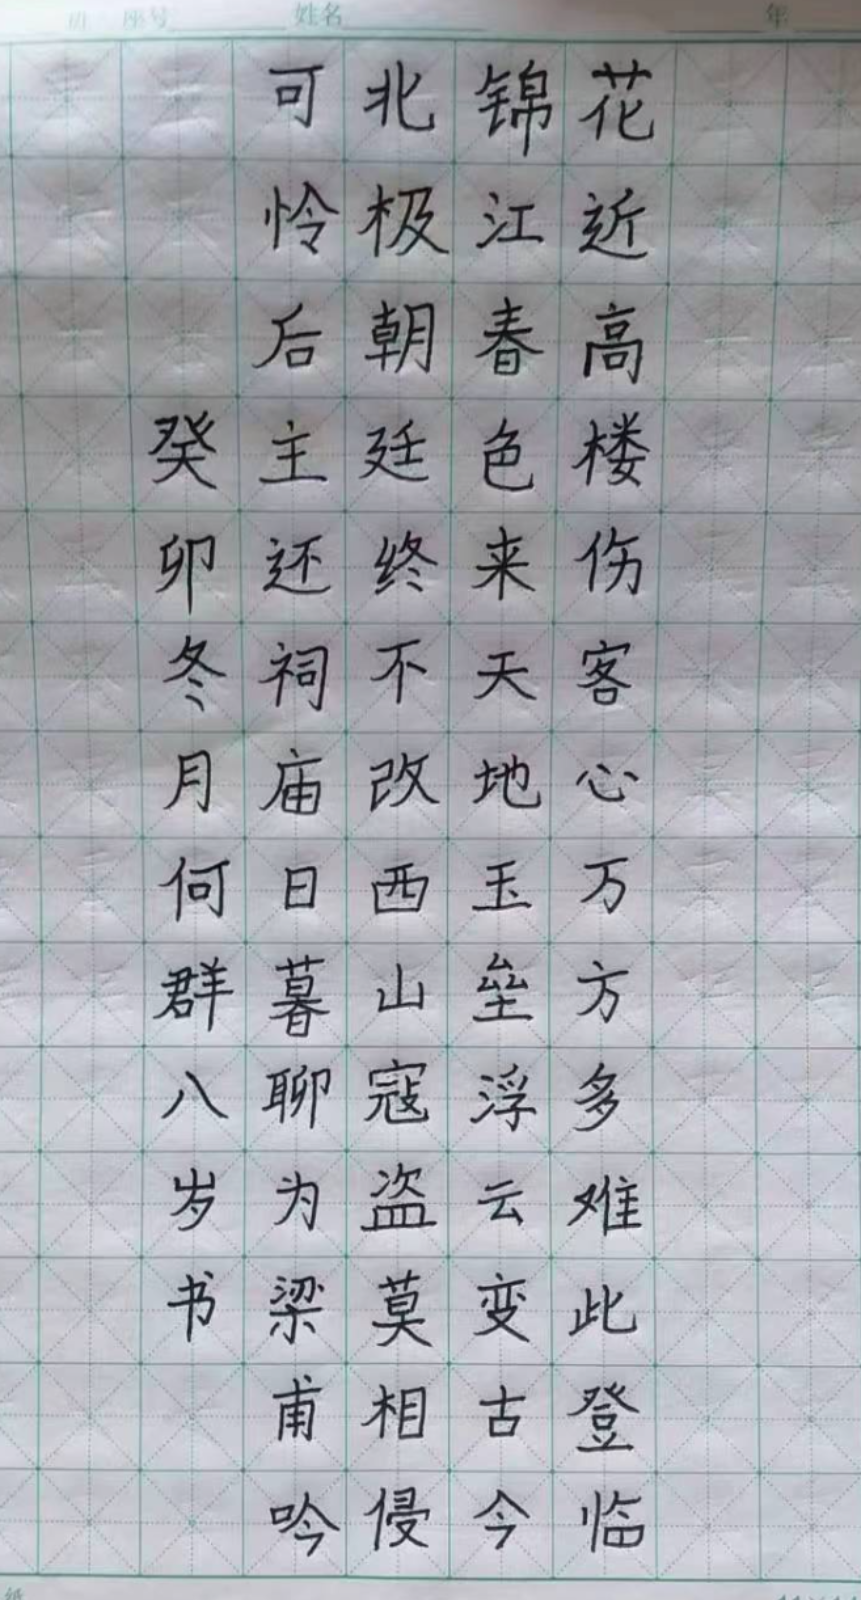 座号 姓名 年
花近高楼伤客心万方多难此登临
锦江春色来天地玉垒浮云变古今
北极朝廷终不改西山寇盗莫相侵
可怜后主还祠庙日暮聊为梁甫吟
癸卯冬月何群八岁书